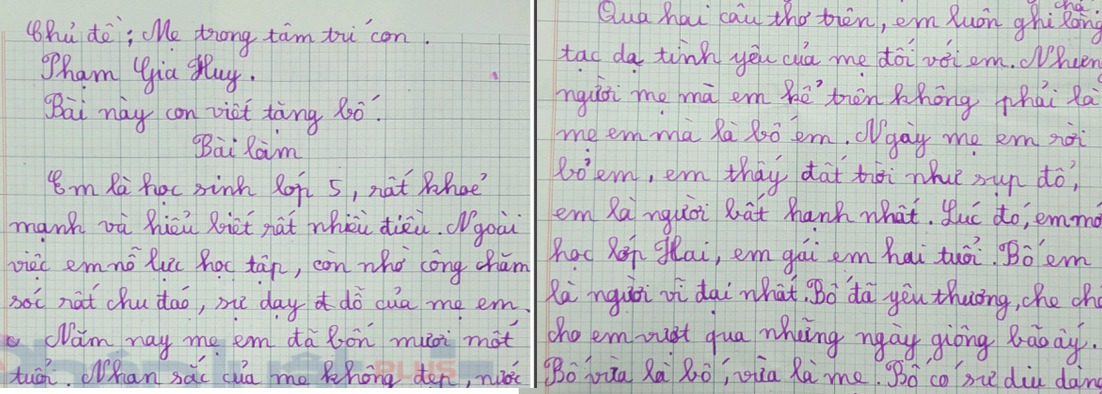 Chủ đề: Mẹ trong tâm trí con.
Phạm Gia Huy.
Bài này con viết tặng bố.
Bài làm
Em là học sinh lớp 5, rất khoẻ
mạnh và hiểu biết rất nhiều điều. Ngoài
việc em nỗ lực học tập, còn nhờ công chăm
sóc rất chu đáo, sự dạy dỗ của mẹ em.
Năm nay mẹ em đã bốn mươi một
tuổi. Nhan sắc của mẹ không đẹp, nước
cha.
Qua hai câu thơ trên, em luôn ghi lòng
tạc dạ tình yêu của mẹ đối với em. Nhưng
người mẹ mà em kể trên không phải là
mẹ em mà là bố em. Ngày mẹ em rời
bỏ em, em thấy đất trời như sụp đổ,
em là người bất hạnh nhất. Lúc đó, em mớ
học lớp Hai, em gái em hai tuổi. Bố em
là người vĩ đại nhất. Bố đã yêu thương, che ch
cho em vượt qua những ngày giông bão ấy.
Bố vừa là bố, vừa là mẹ. Bố có sự dịu dàng
PLUS